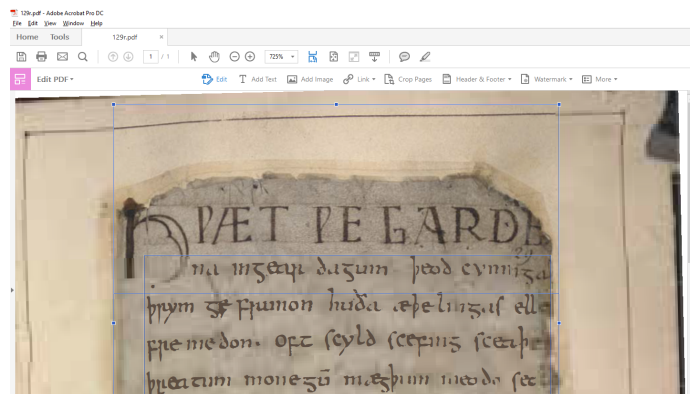 129r.pdf - Adobe Acrobat Pro DC
File Edit View Window Help
Home Tools 129r.pdf ×
1 / 1 725%
Edit PDF Edit Add Text Add Image Link Crop Pages Header & Footer Watermark More
HǷÆT ǷE GARDE
na ingear dagum þeod cyninga
þrym ge frunon huða æþelingas elle
fremedon. oft scyld scefing sceaþe
þreatum monegū mægþum meodo set